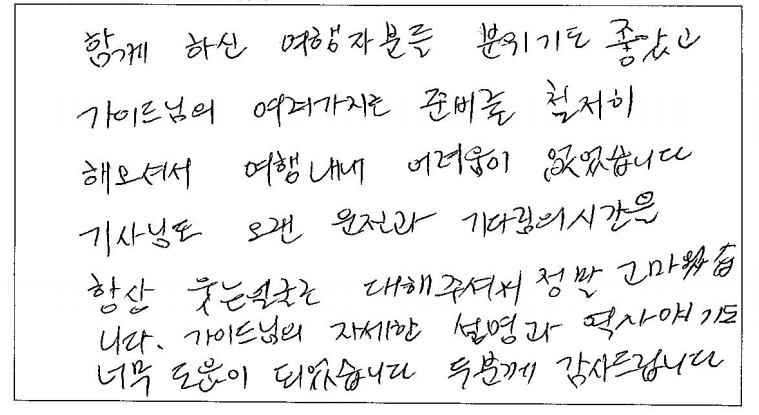 함께 하신 여행자분들 분위기도 좋았고
가이드님의 여러가지로 준비를 철저히
해오셔서 여행내내 어려움이 없었습니다
기사님도 오랜 운전과 기다림의시간을
항상 웃는얼굴로 대해주셔서 정말 고마웠습
니다. 가이드님의 자세한 설명과 역사얘기도
너무 도움이 되었습니다 두분께 감사드립니다